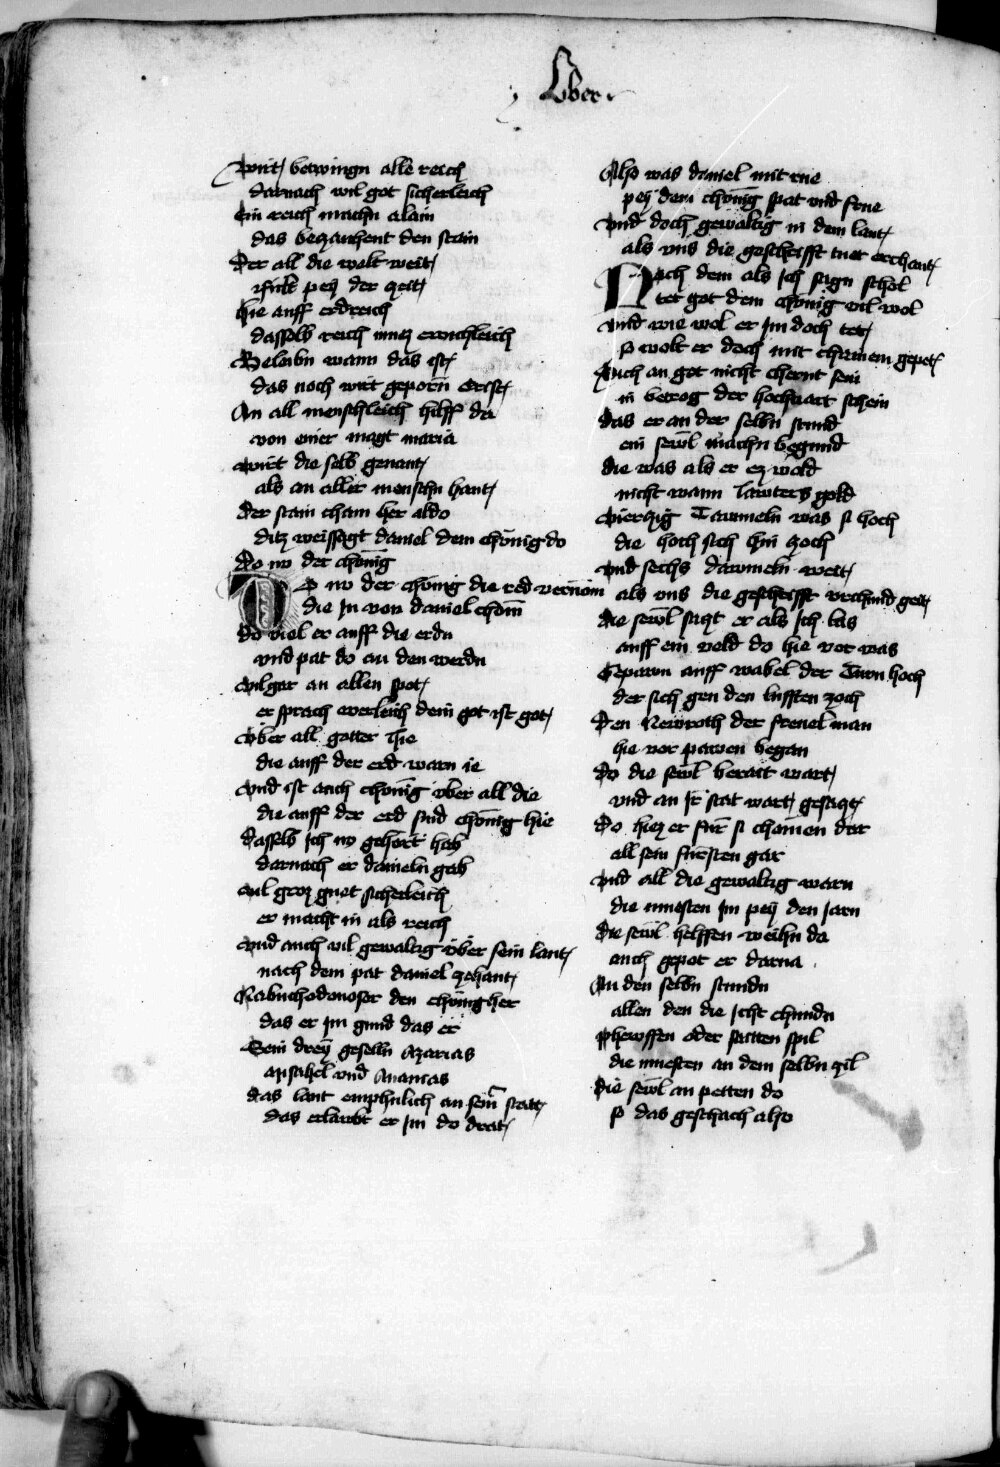 Liber
Wirt betwingn alle reich
darnach wil got sicherleich
Ein reich machn alain
das bezaichent den stain
Der all die welt weit
fult pey der zeit
hie auff erdreich
dasselb reich muez ewichleich
Beleibn wann das ist
das noch wirt geporn Crist
An all menschleich hilff da
von einer magt maria
wirt die selb genant
als an aller menschn hant
der stain cham her aldo
ditz weissagt daniel dem chönig do
do nv der chönig
Do nv der chönig die red vernam
die im von daniel chom
do viel er auff die erdn
vnd pat do an den werdn
vil gar an allen spot
er sprach werleich dein got ist got
Vber all gotter hie
die auff der erd warn ie
vnd ist auch chönig vber all die
die auff der erd sind chönig hie
dasselb ich nv gehört hab
darnach er danieln gab
vil groz guet sicherleich
er macht in als reich
vnd auch vil gewaltig vber sein lant
nach dem pat daniel zehant
Nabuchodonosor den chönig her
das er im gund das er
Sein drey geselln Azarias
Misahel vnd Ananias
das lant emphulich an seiner stat
das erlaubt er im do drat
Also was daniel mit rue
pey dem chönig spat vnd frue
vnd doch gewaltig in dem lant
als vns die geschrifft tuet erchant
Nach dem als ich sagn schol
tet got dem chönig vil wol
vnd wie wol er im doch tet
so wolt er doch mit chainem gepet
Sich an got nicht chern sein
in betrog der hochuart schein
das er an der selbn stund
ein sewl machn begund
die was als er ez wold
nicht wann lauters gold
vierzig Dawmeln was si hoch
die hoch sich hin zoch
vnd sechs dawmeln weit
als vns die geschrifft vrchund geit
die sewl sazt er als ich las
auff ein veld do hie vor was
Gepawn auff wabel der Turn hoch
der sich gen den lufften zoch
Den Nemroth der freuel man
hie vor pawen began
do die sewl berait wart
vnd an ir stat wart gesazt
do hiez er fur si chomen dar
all sein fursten gar
vnd all die gewaltig warn
die muesten im pey den jarn
die sewl helffen weihn da
auch gepot er darna
An den selbn stundn
allen den die icht chundn
Pheiffen oder saitten spil
die muesten an dem selbn zil
die sewl an petten do
so das geschach also